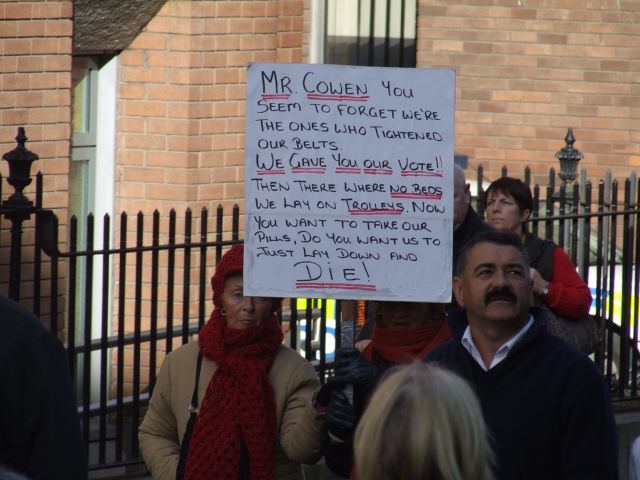 MR. COWEN YOU
SEEM TO FORGET WE'RE
THE ONES WHO TIGHTENED
OUR BELTS.
WE GAVE YOU OUR VOTE!!
THEN THERE WHERE NO BEDS
WE LAY ON TROLLEYS, NOW
YOU WANT TO TAKE OUR
PILLS, DO YOU WANT US TO
JUST LAY DOWN AND
DIE!